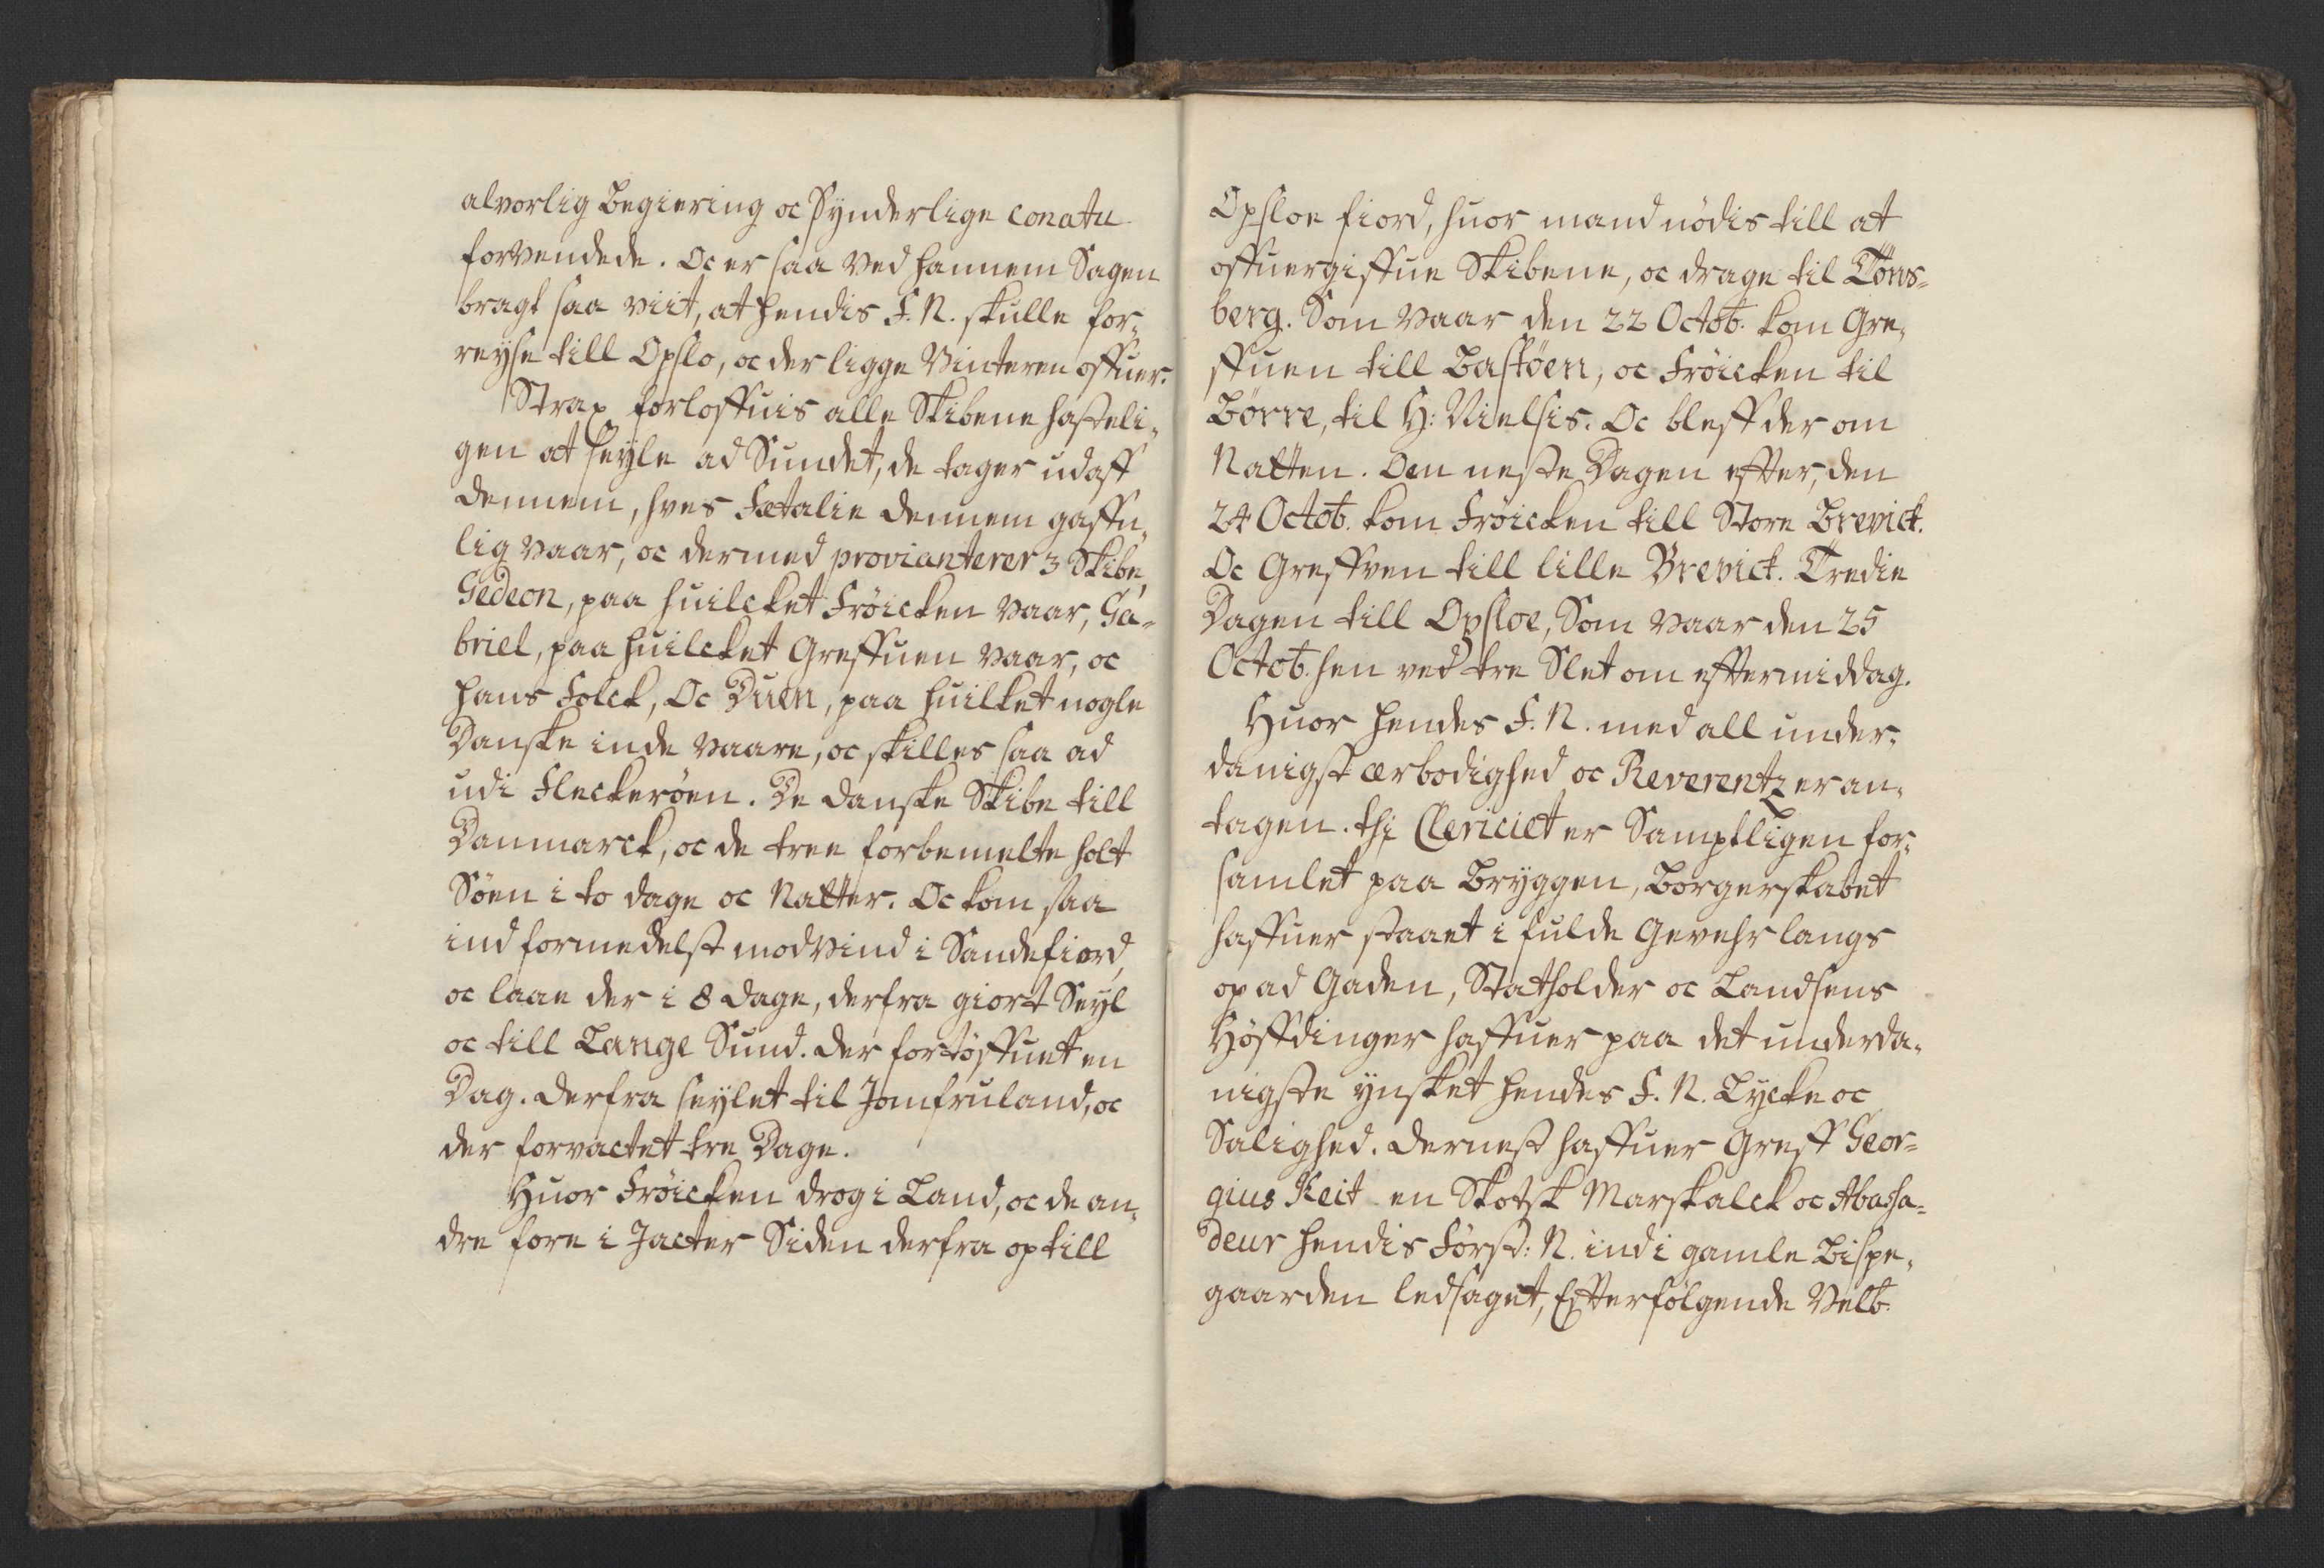 alvorlig Begiering oc Synderlige conatu
forvendede. Oc er saa ved hannem Sagen
bragt saa viit, at hendis F. N. skulle for,
reyse till Opslo, oc der ligge Vinteren offuer.
Strax forloffuis alle Skibene hasteli,
gen at seyle ad Sundet, de tager udaff
dennem, hves Fetalie dennem gaffn,
lig vaar, oc dermed provianterer 3 Skibe,
Gedeon, paa huilcket Frøicken vaar, Ga-
briel, paa huilcket Greffuen vaar, oc
hans Folck, Oc Duen, paa huilket nogle
Danske inde vaare, oc skilles saa ad
udi Fleckerøen. De danske Skibe till
Danmarck, oc de tree forbemelte holt
Søen i to dage oc Natter. Oc kom saa
ind formedelst modvind i Sandefiord,
oc laae der i 8 dage, derfra giort Seyl
oc till Lange Sund. der fortøffuet en
Dag. derfra seylet til Jomfruland, oc
der forvactet tre Dage.
Huor Frøicken drog i Land, oc de an,
dre fore i Jacter Siden derfra op till
Opsloe fiord, huor mand nødis till at
offuergiffue Skibene, oc drage til Tøns-
berg. Som vaar den 22 Octob. kom Gre,
ffuen till Bastøen, oc Frøicken til
Børre, til H: Nielsis. Oc bleff der om
Natten. Den neste Dagen efter, den
24 Octob. kom Frøicken till Store Brevict.
Oc Greffven till lille Brevict. Tredie
Dagen till Opsloe, Som vaar den 25
Octob. hen ved tre Slet om eftermiddag.
Huor hendes F. N. med all under,
danigst ærbødighed oc Reverentz er an,
tagen. thi Clericiet er Samptligen for,
samlet paa Bryggen, Borgerskabet
haffuer staaet i fulde Gevehr langs
op ad Gaden, Statholder oc Landsens
Høffdinger haffuer paa det underda,
nigste ynsket hendes F. N. Lycke oc
Salighed. dernest haffuer Greff Geor-
gius Keit en Skotsk Marskalck oc Abassa-
deur hendis Først: N. ind i gamle Bispe,
gaarden ledsaget, Efterfølgende Velb.